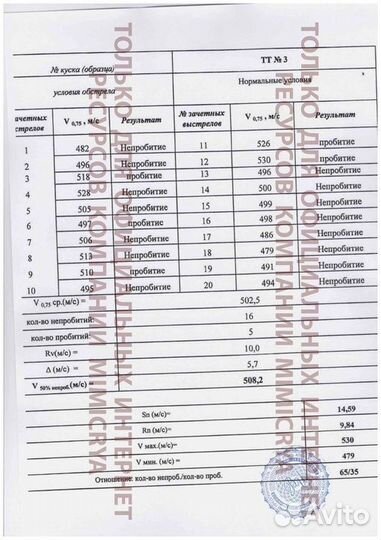 № куска (образца) ТТ № 3
условия обстрела Нормальные условия
зачетных стрелов V 0,75 , м/с Результат № зачетных выстрелов V 0,75 , м/с Результат
1 482 Непробитие 11 526 пробитие
2 496 Непробитие 12 530 пробитие
3 518 пробитие 13 496 Непробитие
4 528 Непробитие 14 500 Непробитие
5 505 Непробитие 15 499 Непробитие
6 497 пробитие 16 498 Непробитие
7 506 Непробитие 17 486 Непробитие
8 513 Непробитие 18 479 Непробитие
9 510 пробитие 19 491 Непробитие
10 495 Непробитие 20 494 Непробитие
V 0,75 ср.(м/с) = 502,5
кол-во непробитий: 16
кол-во пробитий: 5
Rv(м/с) = 10,0
Δ (м/с) = 5,7
V 50% непроб.(м/с)= 508,2
Sn (м/с)= 14,59
Rn (м/с)= 9,84
V мах.(м/с)= 530
V мин. (м/с)= 479
Отношение: кол-во непроб./кол-во проб. 65/35
ТОЛЬКО ДЛЯ ОФИЦИАЛЬНЫХ ИНТЕРНЕТ
РЕСУРСОВ КОМПАНИИ MIMICRYA
ТОЛЬКО ДЛЯ ОФИЦИАЛЬНЫХ ИНТЕРНЕТ
РЕСУРСОВ КОМПАНИИ MIMICRYA
Avito